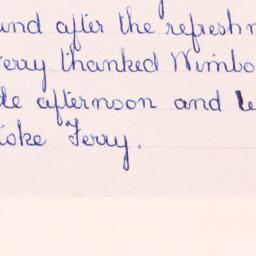 and after the refreshm
erry thanked Wimbo
le afternoon and le
toke Ferry.